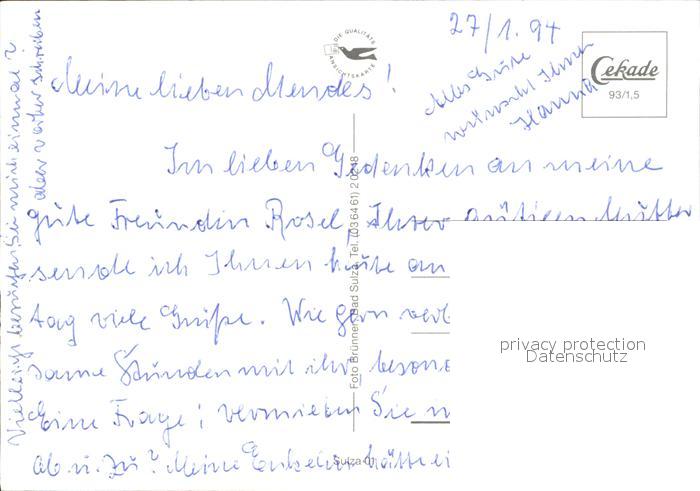 27/1.94
Meine lieben Mendes!
Alles Gute
wünscht Ihnen
Hanna
Im lieben Gedenken an meine
gute Freundin Rosel, Ihrer gütigen Mutter
sende ich Ihnen heute an
tag viele Grüße. Wie gern verb
same Stunden mit ihr, beson
Eine Frage: vermieten Sie n
ab u. zu? Meine Enkelin hätte ei
Vielleicht besuchen Sie mich einmal?
aber vorher schreiben
DIE QUALITÄTS
ANSICHTSKARTE
Cekade
93/1,5
Foto Brünner, Bad Sulza, Tel. (036461) 20248
Sulza 01
privacy protection
Datenschutz